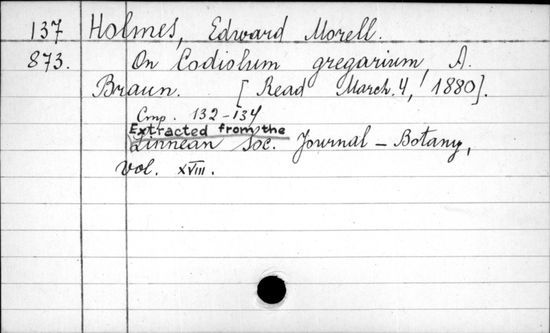 137 Holmes, Edward Morell.
873. On Codiolum gregarium, A.
Braun. [Read March. 4, 1880].
Cmp. 132-134
Extracted from the
Linnean Soc. Journal - Botany,
vol. XVIII.